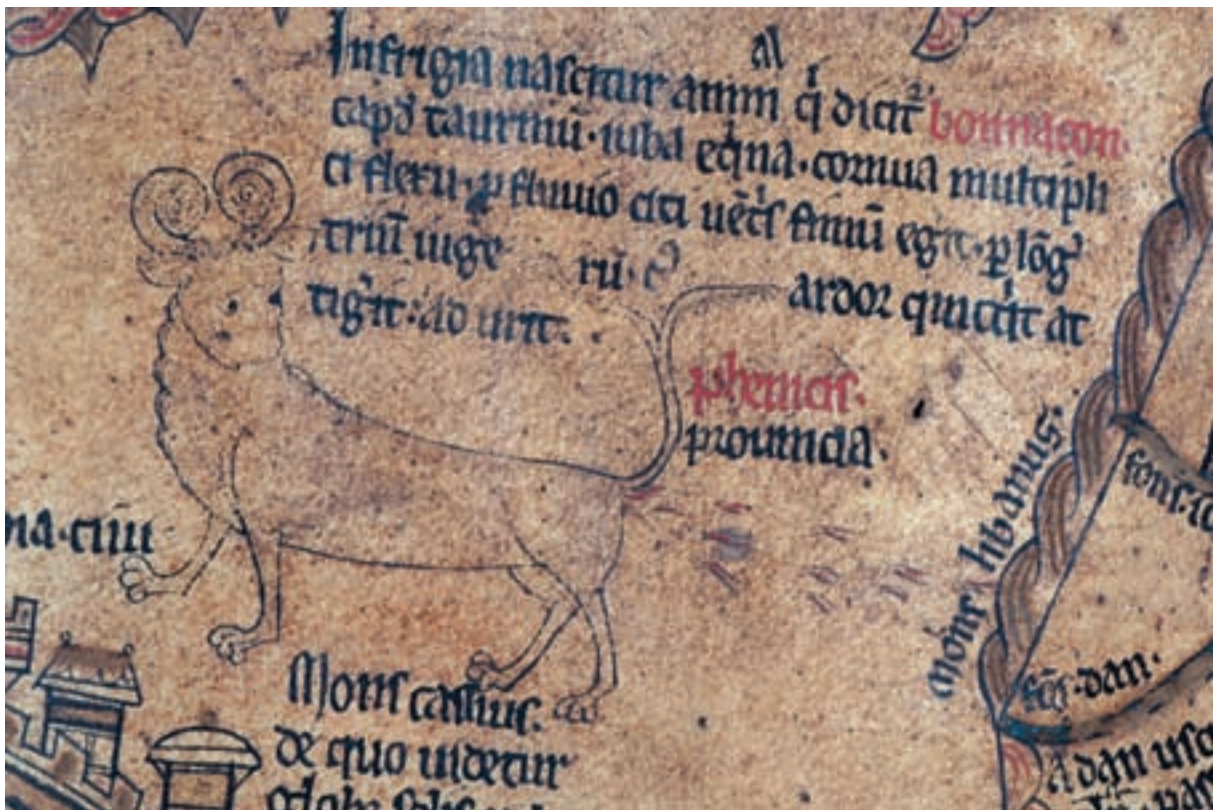 al
Infrigia nascitur anim q̇ dicit᷒ bonnacon·
capđ taurinū·iuba eqͥna·cornua multipli
ci flexu·ꝑ fluuio citi uēt͛s fimū egit·ꝑ lōg᷒
triū iuge rū· ardor quicqͥt at
tigͥt: ad urit·
phenicis·
prouincia·
mons libanus·
na·ciui
fons·io
fōs·dan·
Mons cassius·
de quo uidetur